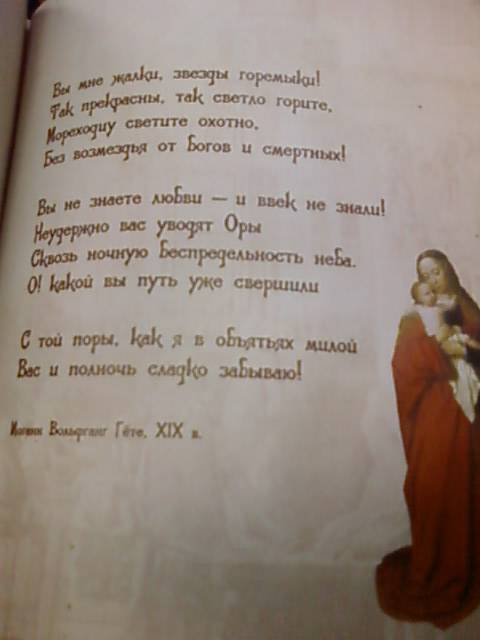 Вы мне жалки, звезды горемыки!
Так прекрасны, так светло горите,
Мореходцу светите охотно,
Без возмездья от богов и смертных!
Вы не знаете любви — и ввек не знали!
Неудержно вас уводят Оры
Сквозь ночную беспредельность неба.
О! какой вы путь уже свершили
С той поры, как я в объятьях милой
Вас и полночь сладко забываю!
Иоганн Вольфганг Гёте, XIX в.